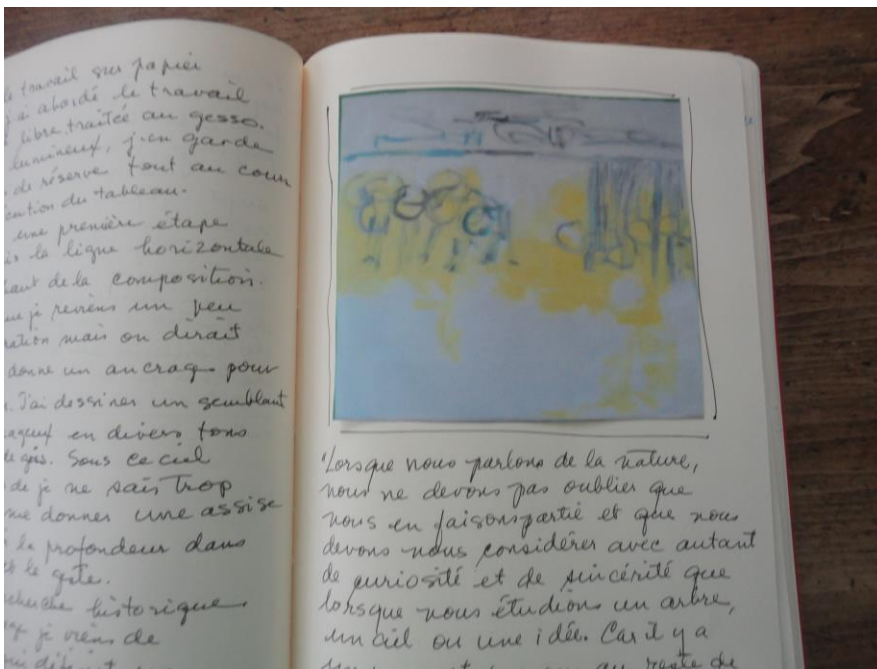 le travail sur papier
j'ai abordé le travail
libre traitée au gesso.
lumineux, j'en garde
de réserve tout au cour
du tableau.
une première étape
la ligne horizontale
de la composition.
je reviens un peu
mais on dirait
donne un ancrage pour
J'ai dessiner un semblant
en divers tons
de gris. Sous ce ciel
de je ne sais trop
me donner une assise
la profondeur dans
et le geste.
historique
je viens de
"Lorsque nous parlons de la nature,
nous ne devons pas oublier que
nous en faisons partie et que nous
devons nous considérer avec autant
de curiosité et de sincérité que
lorsque nous étudions un arbre,
un ciel ou une idée. Car il y a
au reste de